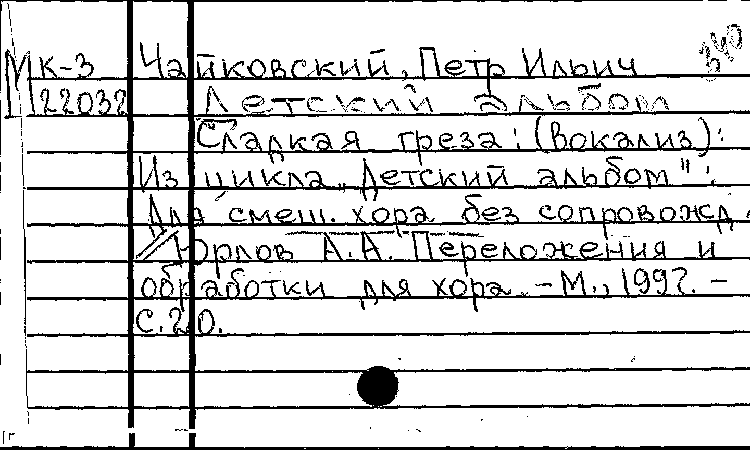 МК-3 Чайковский, Петр Ильич 340
22032 Детский альбом
Сладкая греза: (вокализ):
Из цикла „Детский альбом":
Для смеш. хора без сопровожд.
// Юрлов А.А. Переложения и
обработки для хора. – М., 1997. –
С.20.